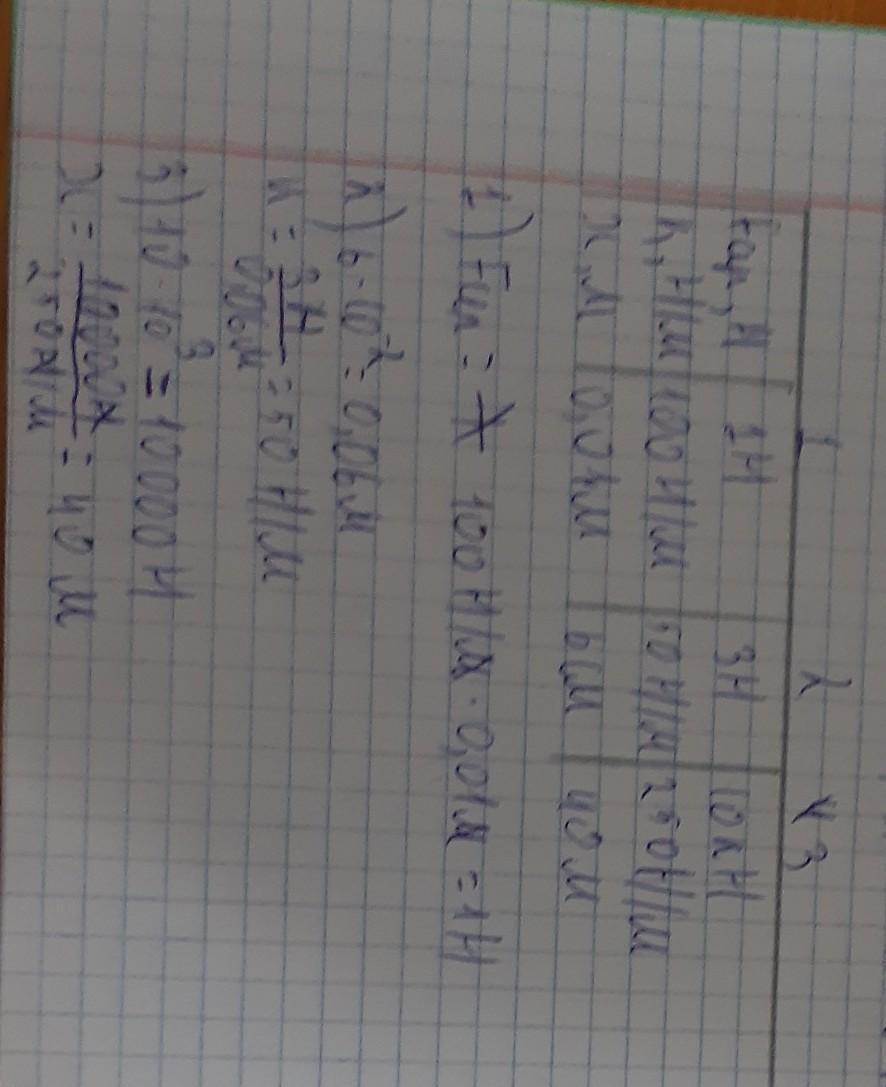 1 2 3
Fупр, Н 1Н 3Н 10кН
k, Н/м 100Н/м 50Н/м 250Н/м
x, м 0,01м 6см 40м
1) Fупр = 100 Н/м · 0,01м = 1Н
2) 6·10⁻² = 0,06м
k = 3Н/0,06м = 50 Н/м
3) 10·10³ = 10000Н
x = 10000Н/250Н/м = 40м